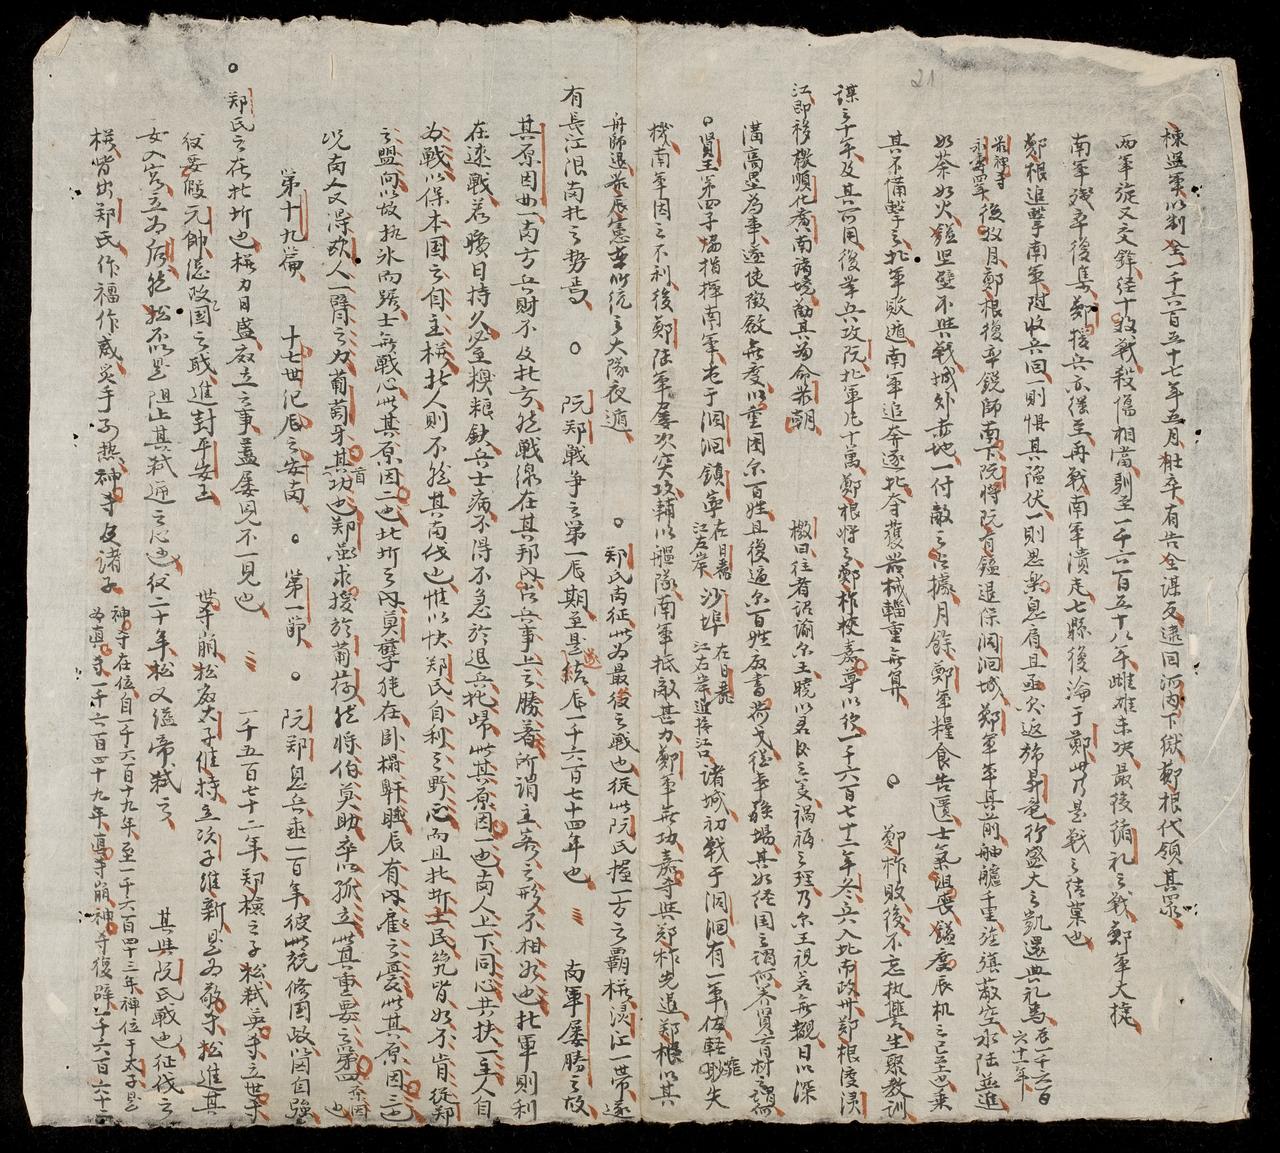 21
棟盡率以割全一千六百五十七年五月壯卒有告全謀反逮回河內下獄鄭根代領其眾
兩軍旋又交鋒往十數戰殺傷相當馴至一千六百五十八年雌雄未決最後循礼之戰鄭軍大捷
南軍殘卒後集鄭援兵亦繼至再戰南軍潰走七縣後淪于鄭此乃是戰之結菓也
鄭根追擊南軍雖收兵回一則惧其陷伏一則思樂息肩且亟欠返旆昇龍行盛大之凱還典礼焉辰一千六百六十一年
我神寺永壽四年後数月鄭根復率銳師南下阮將阮有鎰退保洞洄城鄭軍軍其前舳艫千里旌旗蔽空水陸並進
如荼如火鎰堅壁不與戰城外赤地一付敵之占據月餘鄭軍糧食告匱士氣沮喪鎰度辰机之已至也乘
其不備擊之北軍敗遁南軍追奔逐北夺獲器械輜重無算 ○ 鄭柞敗後不忘执讐生聚教訓
謀之十年及其可用後举兵攻阮北軍凡十萬鄭根將之鄭柞挾嘉尊以從一千六百七十二年冬兵入北布政州鄭根度㵋
江即移檄順化廣南諸境勸其為命於朝 檄曰往者詔諭尓王曉以君臣之义禍福之理乃尓王視若無覩日以深
溝高壘為事遂使徵歛無度以重困尓百姓且後逼尓百姓反書荷戈從事疆場其如经国之謂何養賢百村之謂何
○賢王第四子協指揮南軍屯于洞洄鎮寧在日麗江左岸沙埠在日麗江右岸近接江口諸城初戰于洞洄有一軍伍輕聊失
機南軍因之不利後鄭陸軍屡次突攻輔以艦隊南軍抵敵甚力鄭軍無功嘉寺與鄭柞先退鄭根以其
舟師退於辰憲在所统之大隊夜遁 ○ 鄭氏南征此為最後之戰也從此阮氏握一方之覇权㵋江一帶遂
有長江限南北之势焉 ○ 阮鄭战争之第一辰期至是結辰一千六百七十四年也 南軍屡勝之故
其原因如一南方兵財不及北方然戰線在其邦內於兵事上之勝著所謂主客之形不相如也北軍則利
在速戰若曠日持久必至糗粮缺兵士病不得不急於退兵北歸此其原因一也南人上下同心共扶一主人自
為戰以保本国之自主权北人則不然其南伐也惟以快鄭氏自利之野心而且北圻士民究皆如不肯從鄭
之盟向以故执氷而踞士無戰心此其原因二也北圻之內莫孽能在卧榻鼾睡辰有內雇之憂此其原因三也
况南人又得欧人一臂之力葡萄牙其首功也鄭亟求援於葡荷然將伯莫助卒以孤立此其重要之第四原因也
第十九篇 十七世纪辰之安南 ○ 第一節 ○ 阮鄭息兵垂一百年彼此競修國政以啚自強
○鄭氏之在北圻也权力日盛廢立之事盖屡見不一見也 一千五百七十二年鄭檢之子松弑英寺立世寺
仅妥假元帥僫政国之职進封平安王 世寺崩松廢太子維持立次子維新是為敬寺松進其
女入宮立為后然松不以是阻止其弑逼之心也仅二十年松又縊帝弑之 其與阮氏戰也征伐之
权皆出鄭氏作福作威炙手可热神寺及諸子神寺在位自一千六百十九年至一千六百四十三年禅位于太子是為真寺一千六百四十九年真寺崩神寺復辟一千六百六十二